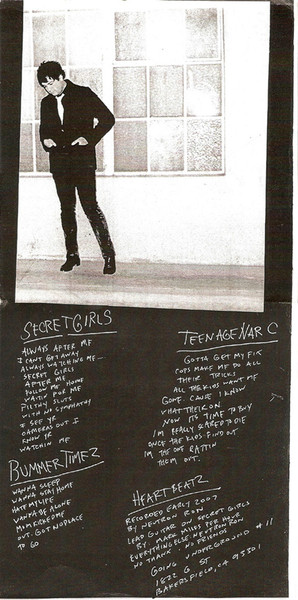 SECRET GIRLS
ALWAYS AFTER ME
I CANT GET AWAY
ALWAYS WATCHING ME—
SECRET GIRLS
AFTER ME
FOLLOW ME HOME
WAITIN FOR ME
FILTHY SLUTS
WITH NO SYMPATHY
I SEE YR
CAMERAS OUT I
KNOW YR
WATCHIN ME
BUMMER TIMEZ
WANNA SLEEP
WANNA STAY HOME
HATE MY LIFE
WANNA BE ALONE
MOM KICKED ME
OUT. GOT NO PLACE
TO GO
TEENAGE NARC
GOTTA GET MY FIX
COPS MAKE ME DO ALL
THEIR TRICKS
ALL THE KIDS WANT ME
GONE. CAUSE I KNOW
WHAT THEIR ON
NOW ITS TIME TO BUY
IM REALLY SCARED TO DIE
ONCE THE KIDS FIND OUT
IM THE ONE RATTIN
THEM OUT.
HEARTBEATZ
RECORDED EARLY 2007
BY NEUTRON RON
LEAD GUITAR ON SECRET GIRLS
BY MARK MILLS PER
EVERYTHING ELSE NEUTRON RON
NO THANX. NO FRIENDS
GOING UNDERGROUND #11
1822 G ST
BAKERSFIELD, CA 93301